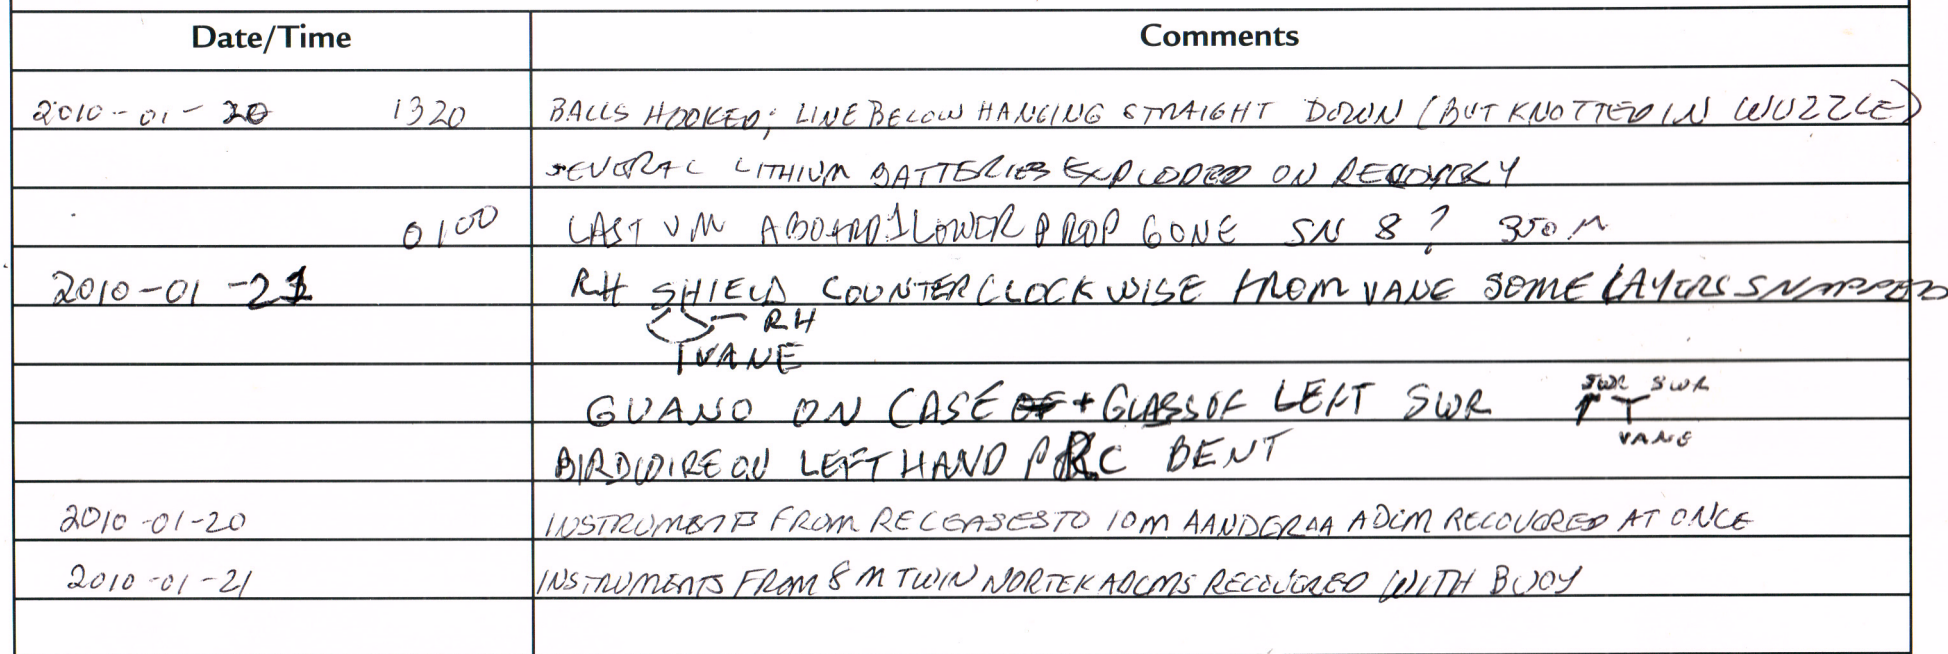 Date/Time Comments
2010-01-20 1320 BALLS HOOKED; LINE BELOW HANGING STRAIGHT DOWN (BUT KNOTTED IN WUZZLE)
SEVERAL LITHIUM BATTERIES EXPLODED ON RECOVERY
0100 LAST VM ABOARD 1 LOWER PROP GONE SN 8? 350 M
2010-01-21 RH SHIELD COUNTERCLOCKWISE FROM VANE SOME LAYERS SNAPPED
RH
VANE
GUANO ON CASE + GLASS OF LEFT SWR SWR SWR
VANE
BIRDWIRE ON LEFT HAND PRC BENT
2010-01-20 INSTRUMENTS FROM RELEASES TO 10M AANDERAA ADCM RECOVERED AT ONCE
2010-01-21 INSTRUMENTS FROM 8 M TWIN NORTEK ADCMS RECOVERED WITH BUOY